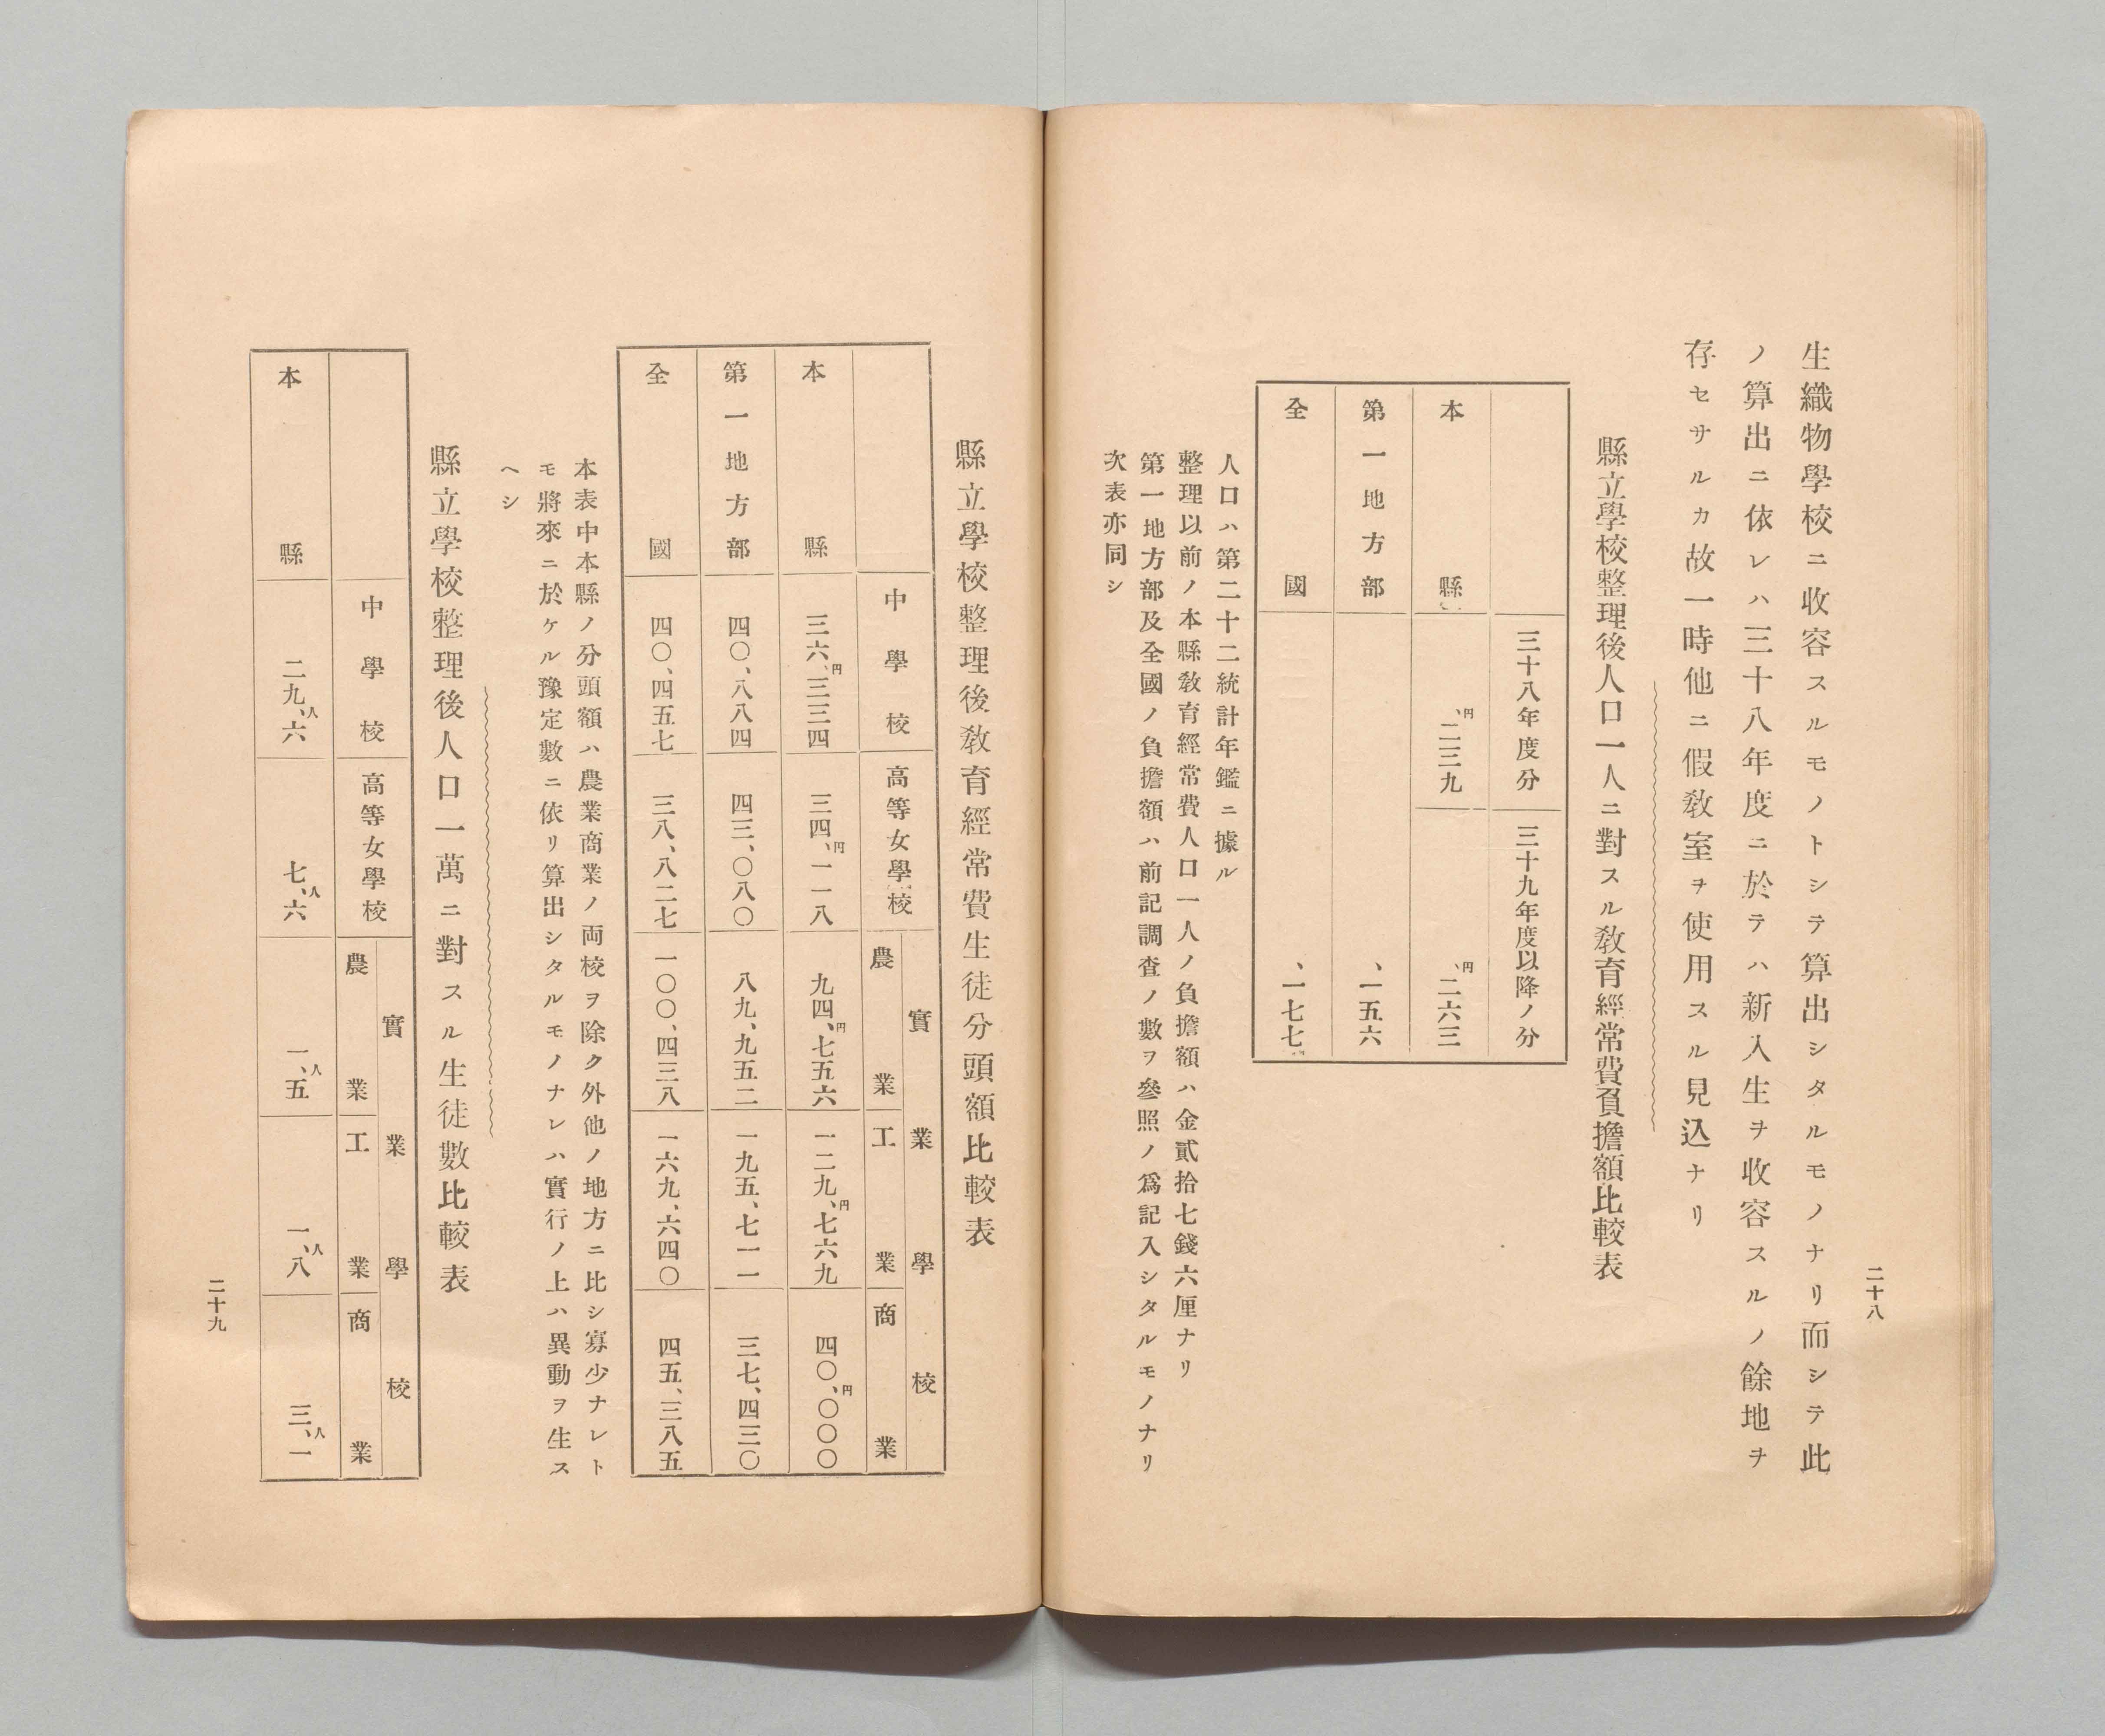 二十八
生織物學校ニ收容スルモノトシテ算出シタルモノナリ而シテ此
ノ算出ニ依レハ三十八年度ニ於テハ新入生ヲ收容スルノ餘地ヲ
存セサルカ故一時他ニ假敎室ヲ使用スル見込ナリ
縣立學校整理後人口一人ニ對スル敎育經常費負擔額比較表
三十八年度分 三十九年度以降ノ分
本縣 、円二三九 、円二六三
第一地方部 、一五六
全國 、一七七
人口ハ第二十二統計年鑑ニ據ル
整理以前ノ本縣敎育經常費人口一人ノ負擔額ハ金貳拾七錢六厘ナリ
第一地方部及全國ノ負擔額ハ前記調査ノ數ヲ參照ノ爲記入シタルモノナリ
次表亦同シ
縣立學校整理後敎育經常費生徒分頭額比較表
中學校 高等女學校 實業學校
農業 工業 商業
本縣 三六、円三三四 三四、円一一八 九四、円七五六 一二九、円七六九 四〇、円〇〇〇
第一地方部 四〇、八八四 四三、〇八〇 八九、九五二 一九五、七一一 三七、四三〇
全國 四〇、四五七 三八、八二七 一〇〇、四三八 一六九、六四〇 四五、三八五
本表中本縣ノ分頭額ハ農業商業ノ両校ヲ除ク外他ノ地方ニ比シ寡少ナレト
モ將來ニ於ケル豫定數ニ依リ算出シタルモノナレハ實行ノ上ハ異動ヲ生ス
ヘシ
縣立學校整理後人口一萬ニ對スル生徒數比較表
中學校 高等女學校 實業學校
農業 工業 商業
本縣 二九、人六 七、人六 一、人五 一、人八 三、人一
二十九